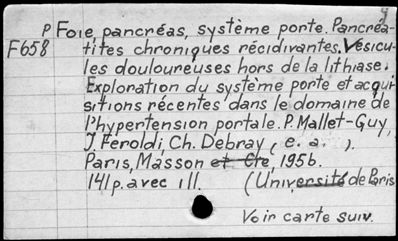 P Foie, pancréas, système porte. Pancréa-
F658 tites chroniques récidivantes. Vésicu-
les douloureuses hors de la lithiase.
Exploration du système porte et acqui-
sitions récentes dans le domaine de
l'hypertension portale. P. Mallet-Guy,
J. Feroldi, Ch. Debray, (e. a. ).
Paris, Masson et Cie, 1956.
141 p. avec ill. (Université de Paris
Voir carte suiv.